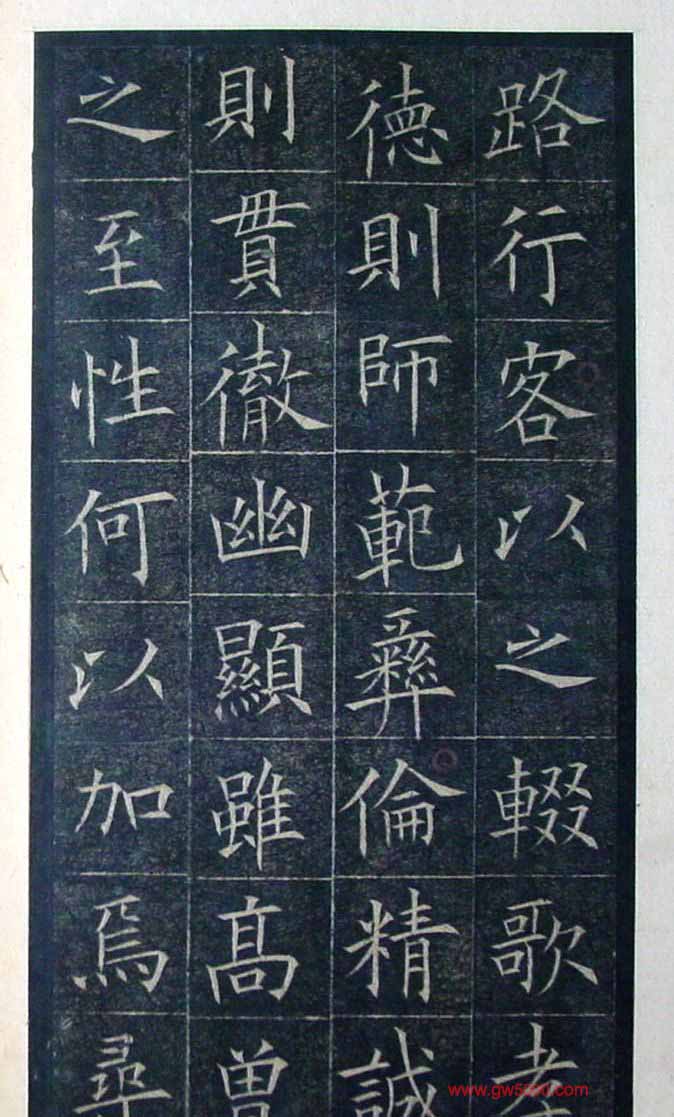 路行客以之輟歌
德則師範彝倫精誠
則貫徹幽顯雖高曾
之至性何以加焉尋